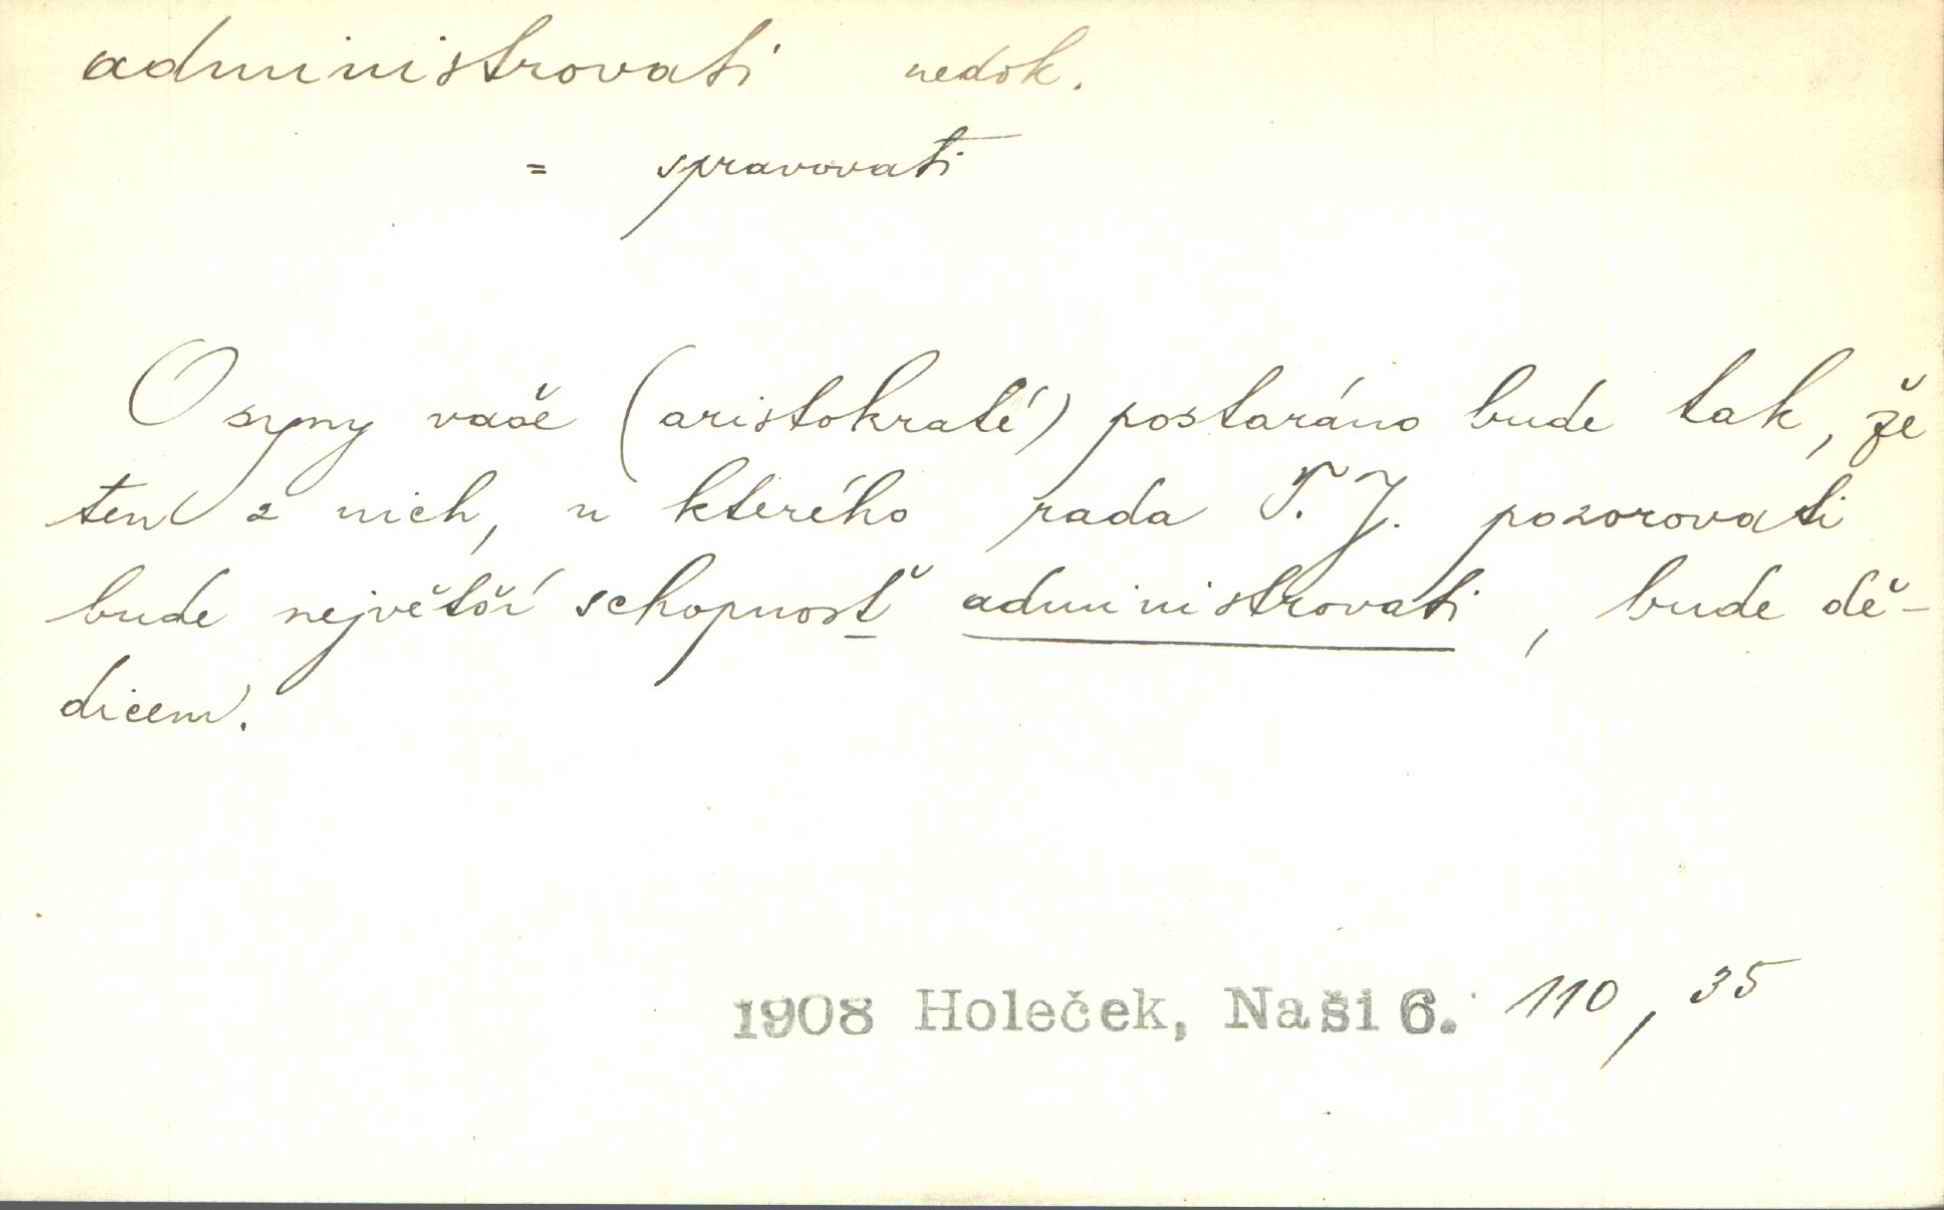 administrovati nedok.
= spravovati
O syny vaše (aristokraté) postaráno bude tak, že
ten z nich, u kterého rada T. J. pozorovati
bude největší schopnosť administrovati, bude dě-
dicem.
1908 Holeček, Naši 6. 110, 35